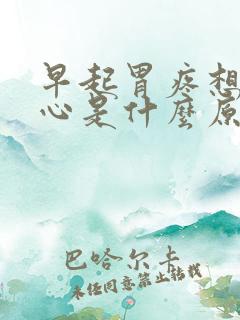 早起胃疼想
心是什麼原
巴哈尔卡
未经同意禁止转载